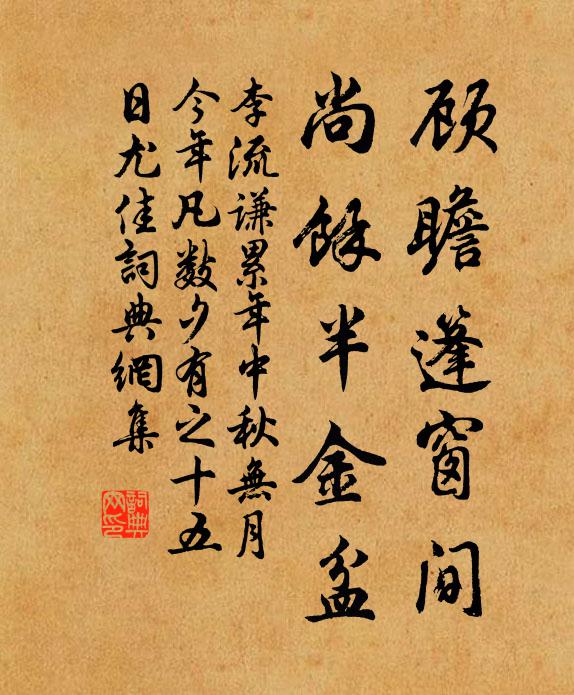 顾瞻蓬窗间
尚馀半金盆
李流谦累年中秋無月
今年凡数夕有之十五
日尤佳詞典網集
詞典
网印